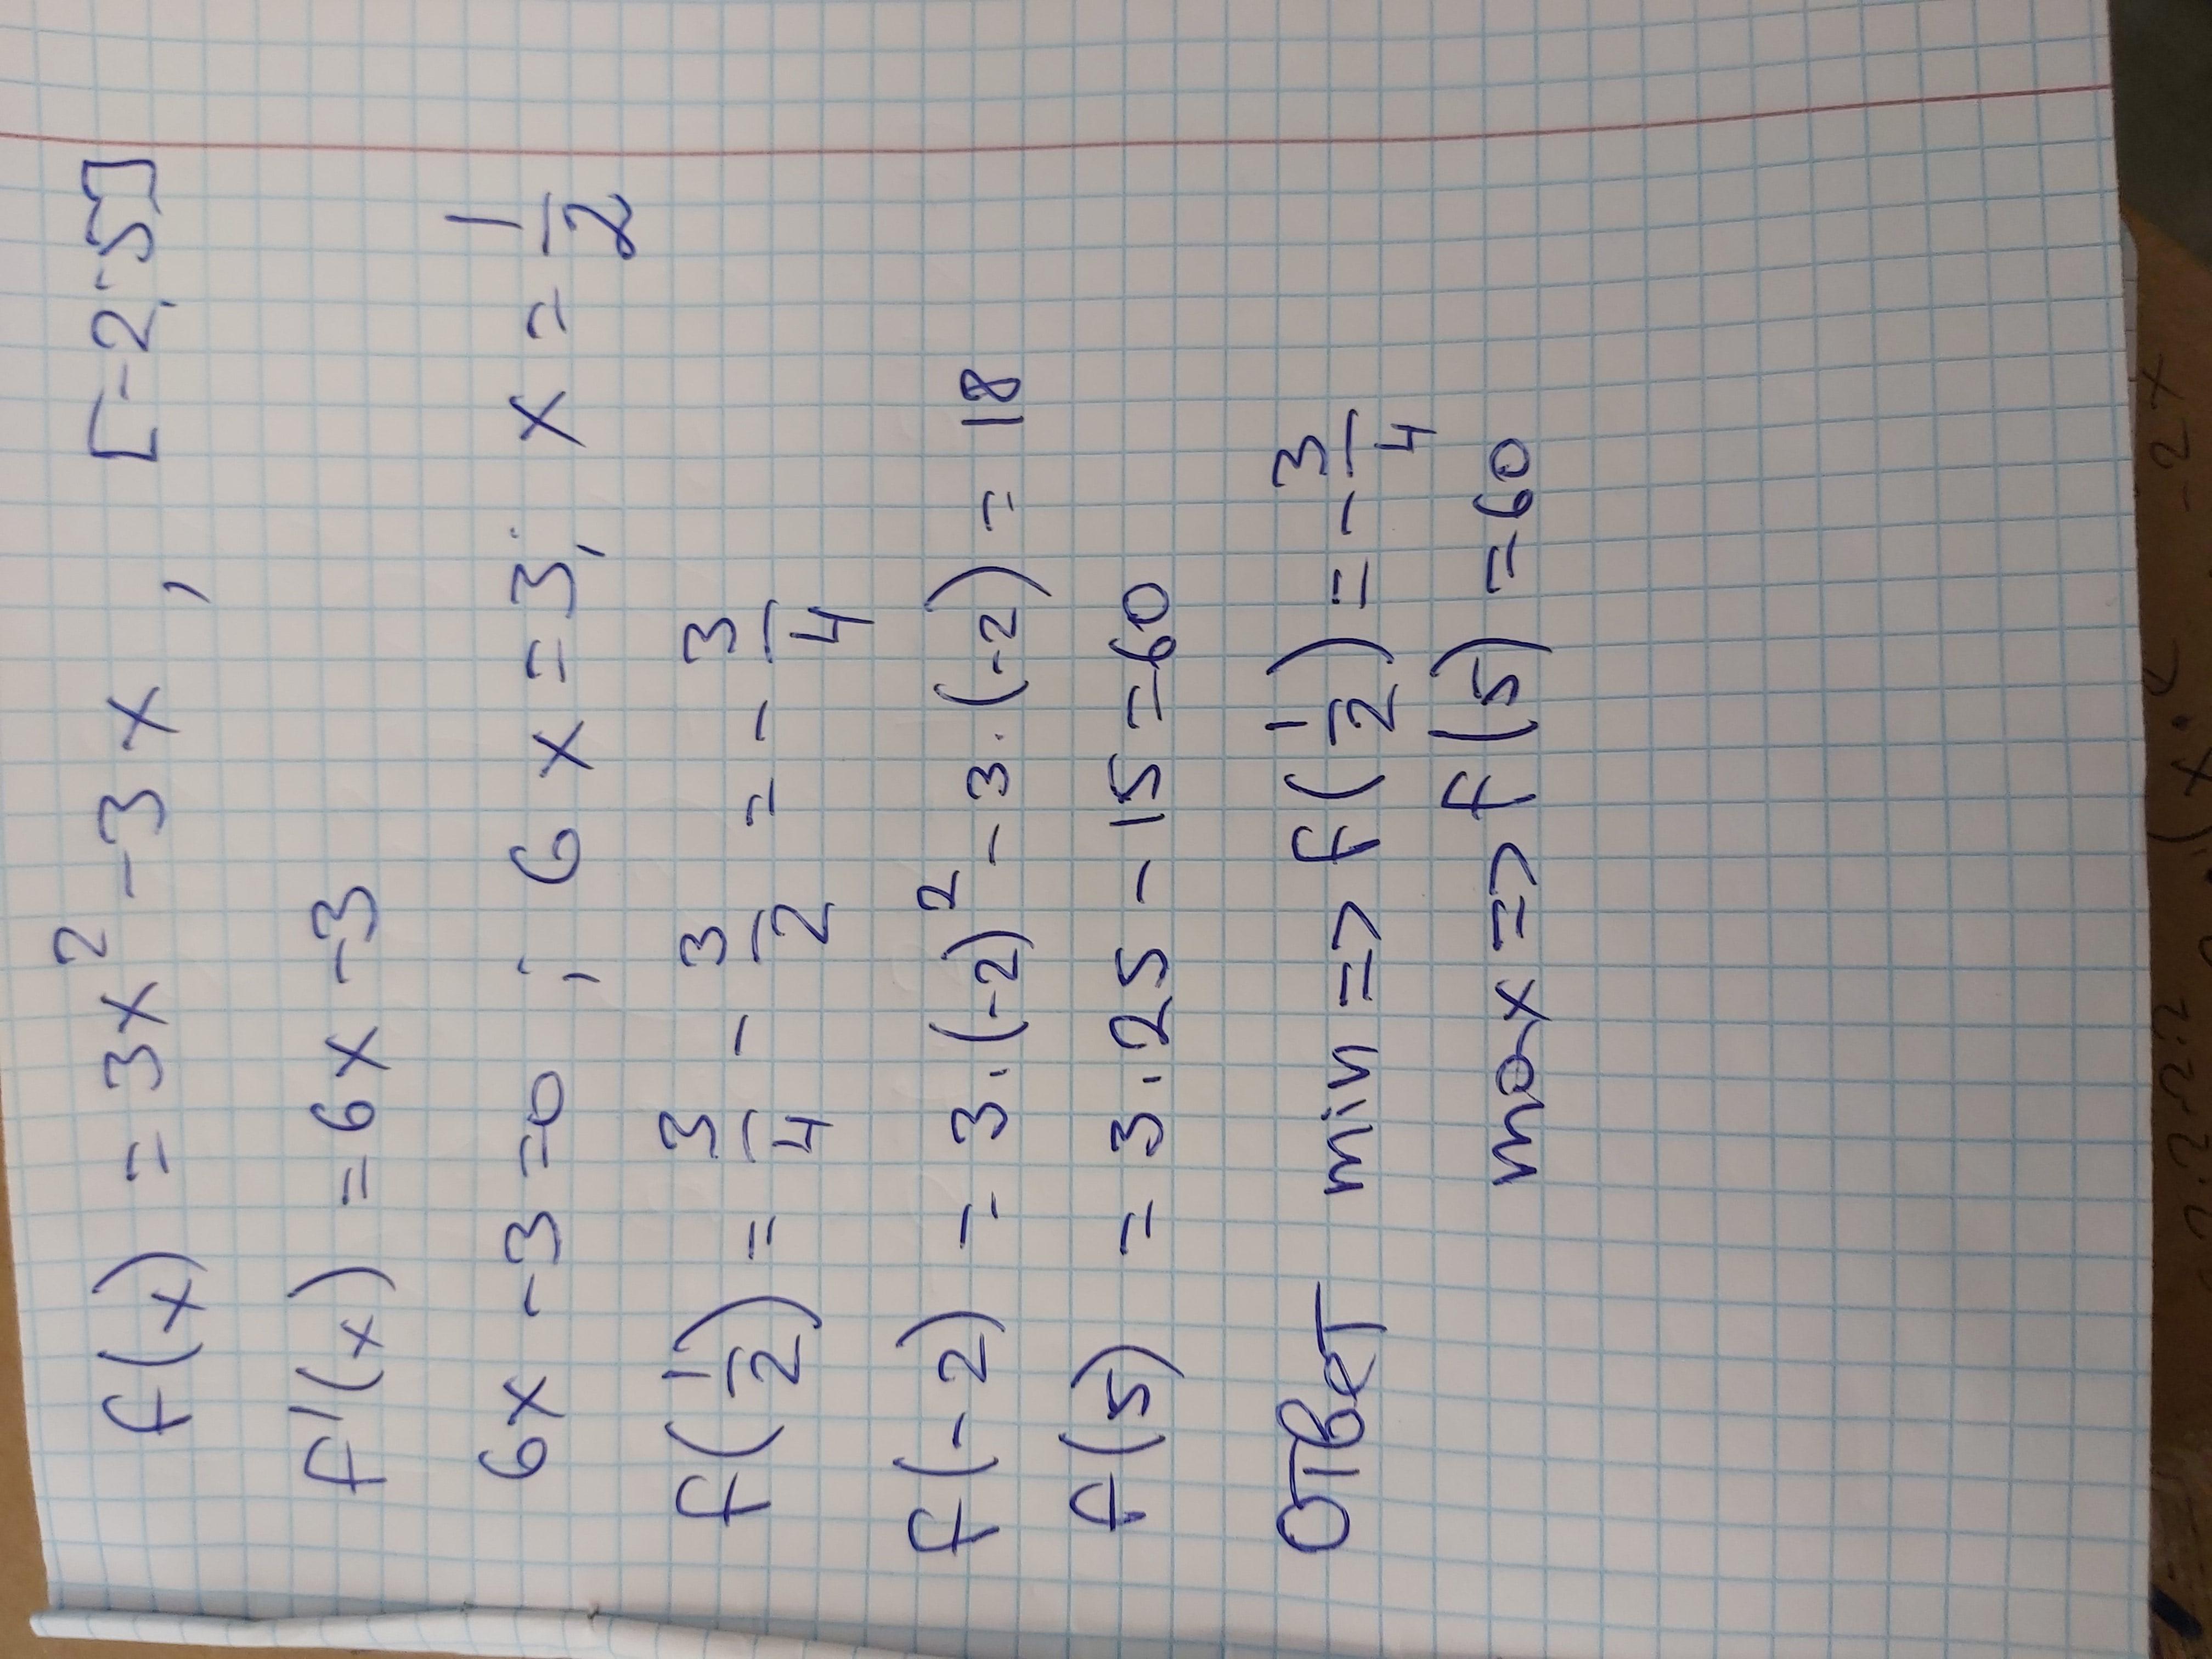 f(x) = 3x² - 3x , [-2; 5]
f'(x) = 6x - 3
6x - 3 = 0 ; 6x = 3; x = 1/2
f(1/2) = 3/4 - 3/2 = - 3/4
f(-2) = 3·(-2)² - 3·(-2) = 18
f(5) = 3·25 - 15 = 60
Ответ min => f(1/2) = - 3/4
max => f(5) = 60